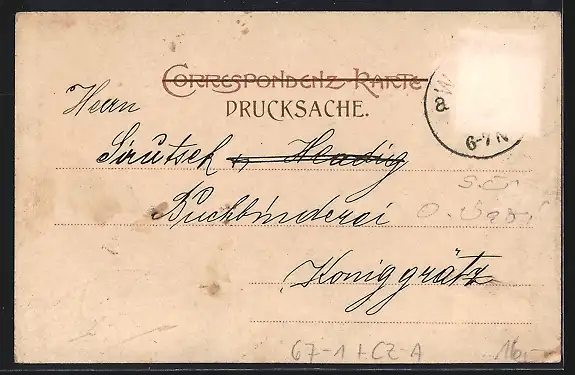 Correspondenz-Karte
DRUCKSACHE.
Herrn
Sirutsek & Hladig
Buchbinderei
Königgrätz
a W
6-7 N
67-1+CZ-A
16,-